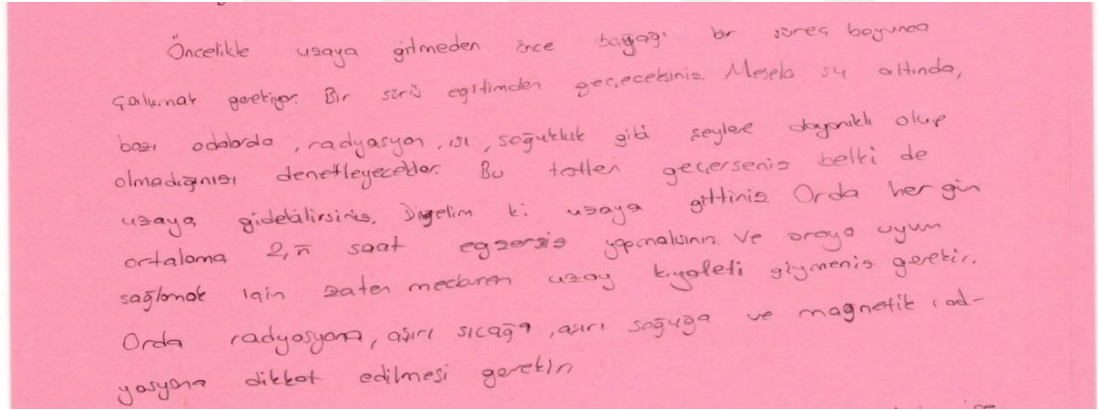 Öncelikle uzaya gitmeden önce bayağı bir süreç boyunca
çalışmak gerekiyor. Bir sürü egitimden geçeceksiniz. Mesela su altında,
bazı odalarda, radyasyon, ısı, soğukluk gibi şeylere dayanıklı olup
olmadığınızı denetleyecekler. Bu testleri geçerseniz belki de
uzaya gidebilirsiniz. Diyelim ki uzaya gittiniz. Orda her gün
ortalama 2, saat egzersiz yapmalısınız. Ve oraya uyum
sağlamak için zaten mecburen uzay kıyafeti giymeniz gerekir.
Orda radyasyona, aşırı sıcağa, aşırı soğuğa ve magnetik rad-
yasyona dikkat edilmesi gerekir